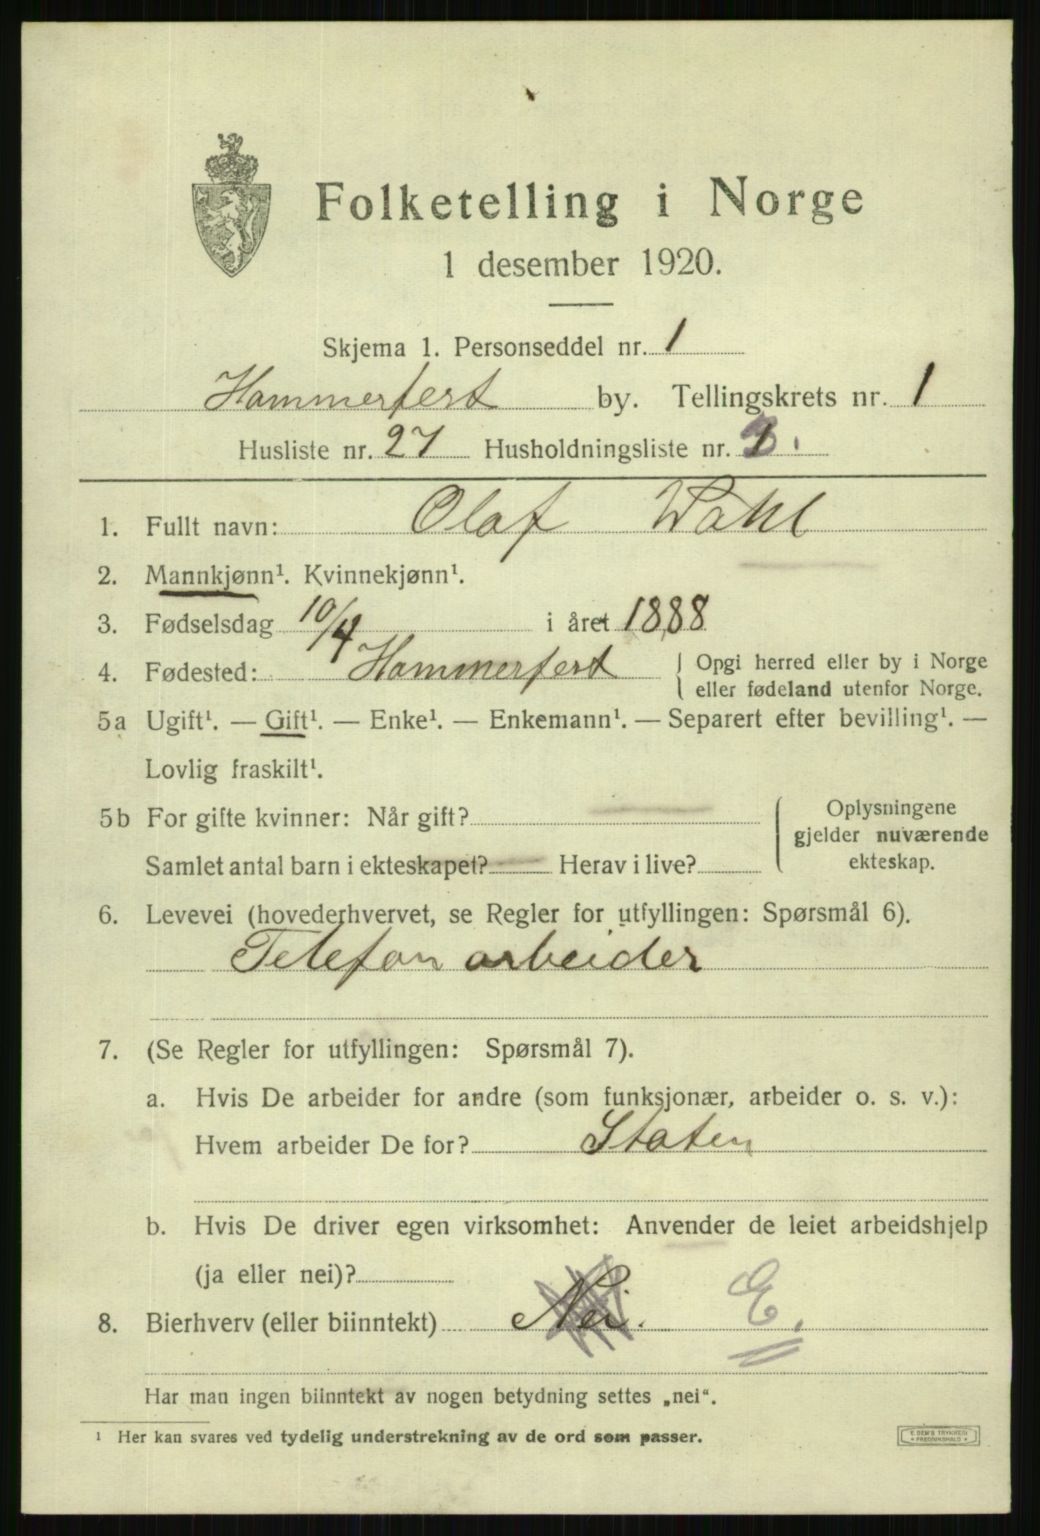 Folketelling i Norge
1 desember 1920.
Skjema 1. Personseddel nr. 1
Hammerfest by. Tellingskrets nr. 1
Husliste nr. 27 Husholdningsliste nr. 1.
1. Fullt navn: Olaf Wahl
2. Mannkjønn¹. Kvinnekjønn¹.
3. Fødselsdag 10/4 i året 1888
4. Fødested: Hammerfest Opgi herred eller by i Norge
eller fødeland utenfor Norge.
5a Ugift¹. — Gift¹. — Enke¹. — Enkemann¹. — Separert efter bevilling¹. —
Lovlig fraskilt¹.
5b For gifte kvinner: Når gift? Oplysningene
gjelder nuværende
Samlet antal barn i ekteskapet? Herav i live? ekteskap.
6. Levevei (hovederhvervet, se Regler for utfyllingen: Spørsmål 6).
Telefon arbeider
7. (Se Regler for utfyllingen: Spørsmål 7).
a. Hvis De arbeider for andre (som funksjonær, arbeider o. s. v.):
Hvem arbeider De for? Staten
b. Hvis De driver egen virksomhet: Anvender de leiet arbeidshjelp
(ja eller nei)?
8. Bierhverv (eller biinntekt) Nei. E.
Har man ingen biinntekt av nogen betydning settes „nei“.
¹ Her kan svares ved tydelig understrekning av de ord som passer.
E. SEM'S TRYKKERI
FREDRIKSHALD